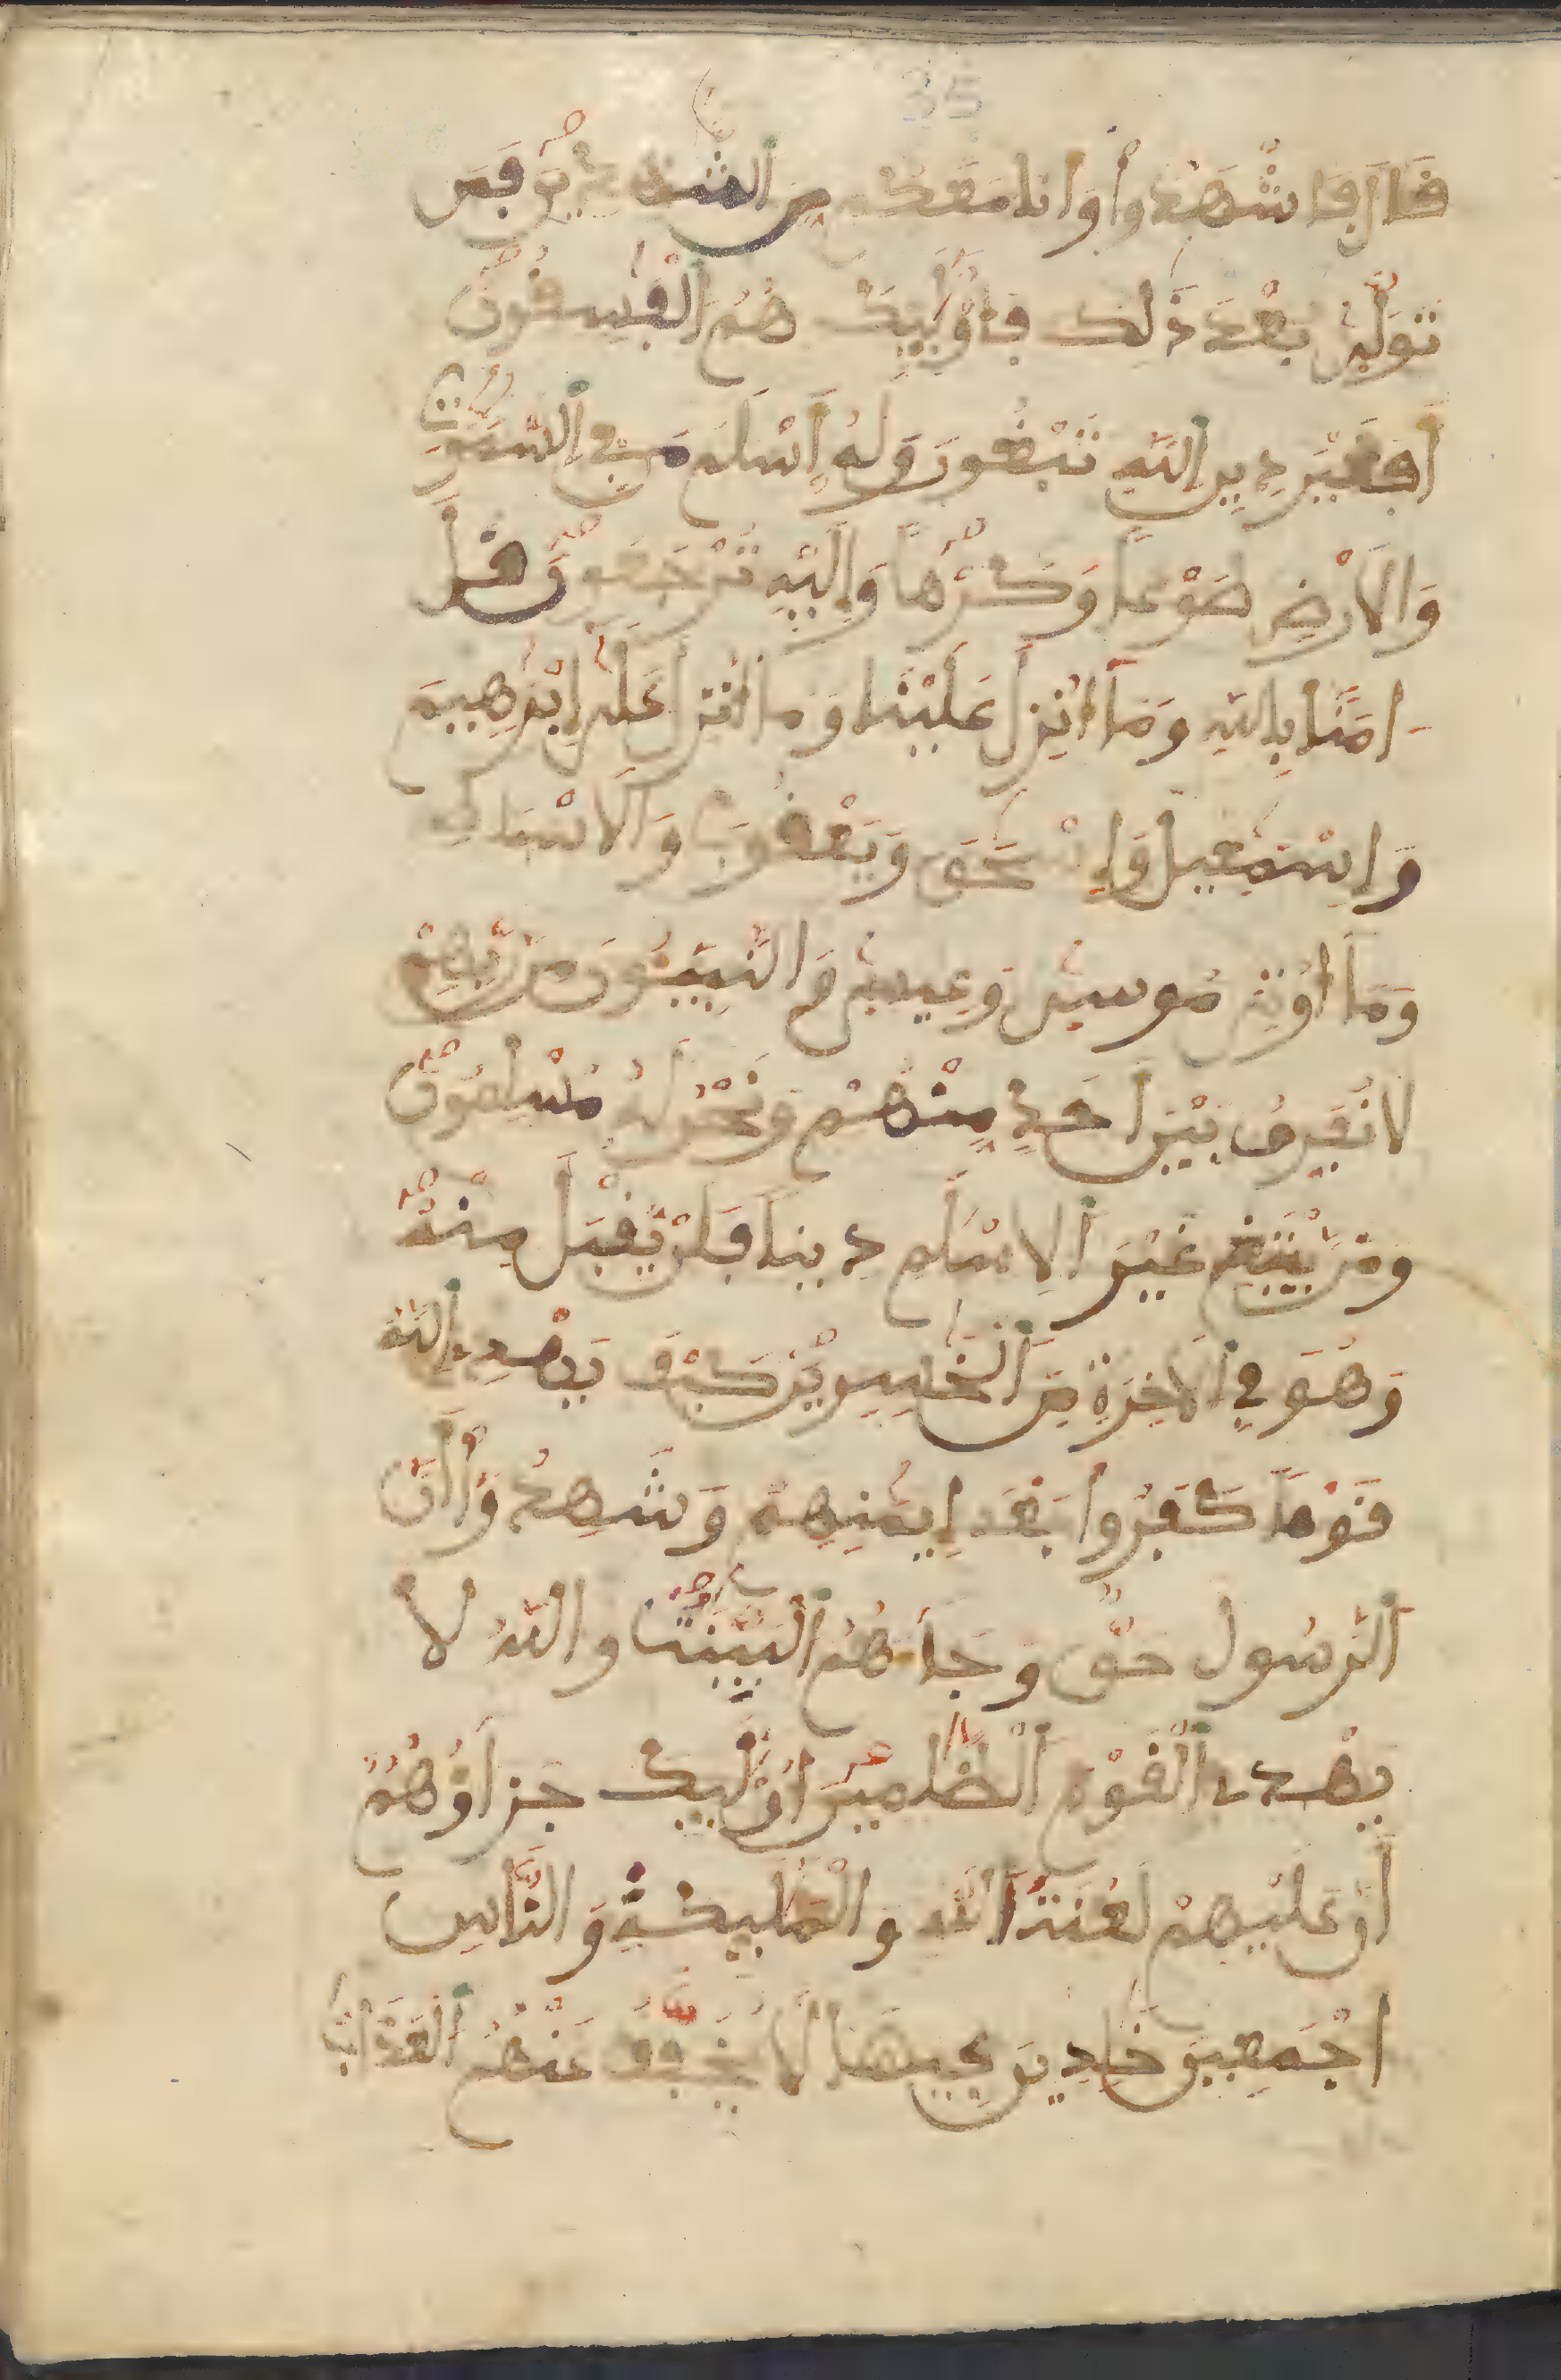 35
قَالَ فَاشْهَدُوا وَأَنَا مَعَكُم مِّنَ الشَّٰهِدِينَ فَمَن
تَوَلَّىٰ بَعْدَ ذَٰلِكَ فَأُوْلَٰئِكَ هُمُ الْفَٰسِقُونَ
أَفَغَيْرَ دِينِ اللَّهِ تَبْغُونَ وَلَهُ أَسْلَمَ مَن فِي السَّمَٰوَٰتِ
وَالْأَرْضِ طَوْعًا وَكَرْهًا وَإِلَيْهِ تُرْجَعُونَ قُلْ
ءَامَنَّا بِاللَّهِ وَمَا أُنزِلَ عَلَيْنَا وَمَا أُنزِلَ عَلَىٰ إِبْرَٰهِيمَ
وَإِسْمَٰعِيلَ وَإِسْحَٰقَ وَيَعْقُوبَ وَالْأَسْبَاطِ
وَمَا أُوتِيَ مُوسَىٰ وَعِيسَىٰ وَالنَّبِيُّونَ مِن رَّبِّهِمْ
لَا نُفَرِّقُ بَيْنَ أَحَدٍ مِّنْهُمْ وَنَحْنُ لَهُ مُسْلِمُونَ
وَمَن يَبْتَغِ غَيْرَ الْإِسْلَٰمِ دِينًا فَلَن يُقْبَلَ مِنْهُ
وَهُوَ فِي الْأَخِرَةِ مِنَ الْخَٰسِرِينَ كَيْفَ يَهْدِي اللَّهُ
قَوْمًا كَفَرُوا بَعْدَ إِيمَٰنِهِمْ وَشَهِدُوا أَنَّ
الرَّسُولَ حَقٌّ وَجَاءَهُمُ الْبَيِّنَٰتُ وَاللَّهُ لَا
يَهْدِي الْقَوْمَ الظَّٰلِمِينَ أُوْلَٰئِكَ جَزَاؤُهُمْ
أَنَّ عَلَيْهِمْ لَعْنَةَ اللَّهِ وَالْمَلَٰئِكَةِ وَالنَّاسِ
أَجْمَعِينَ خَٰلِدِينَ فِيهَا لَا يُخَفَّفُ عَنْهُمُ الْعَذَابُ